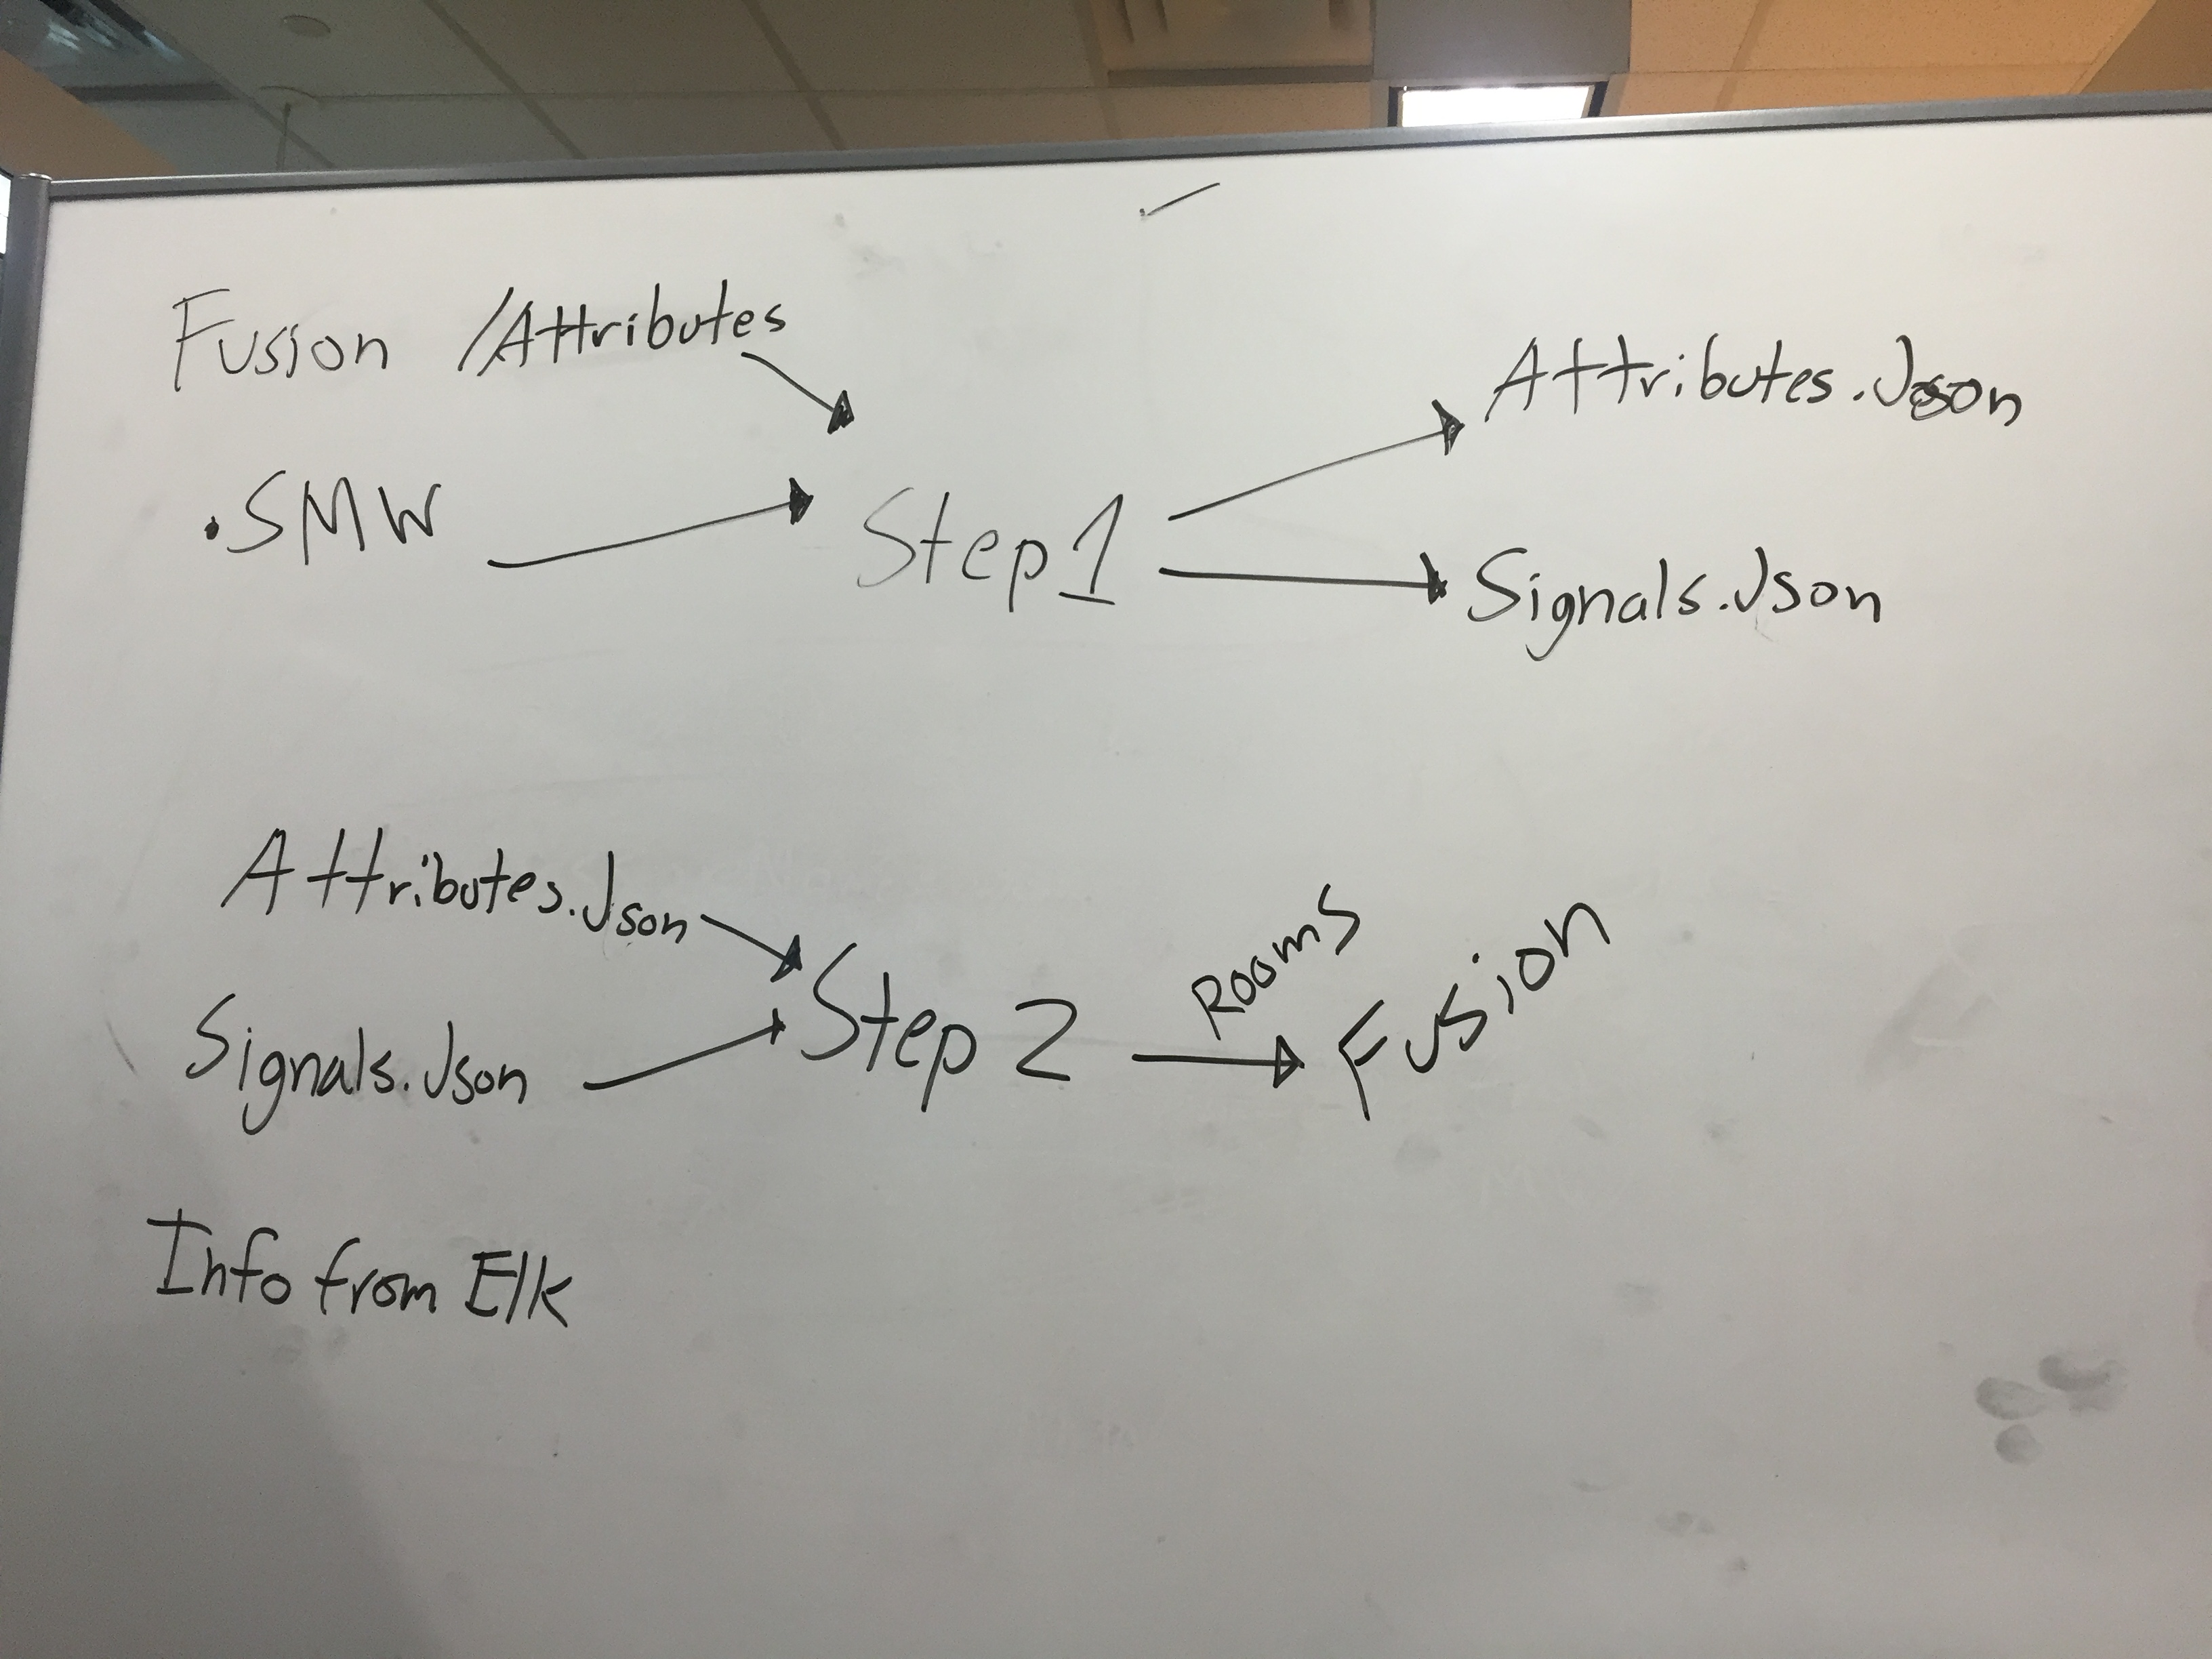 Fusion /Attributes
.SMW
Step 1
Attributes.Json
Signals.Json
Attributes.Json
Signals.Json
Step 2
Rooms
Fusion
Info from Elk